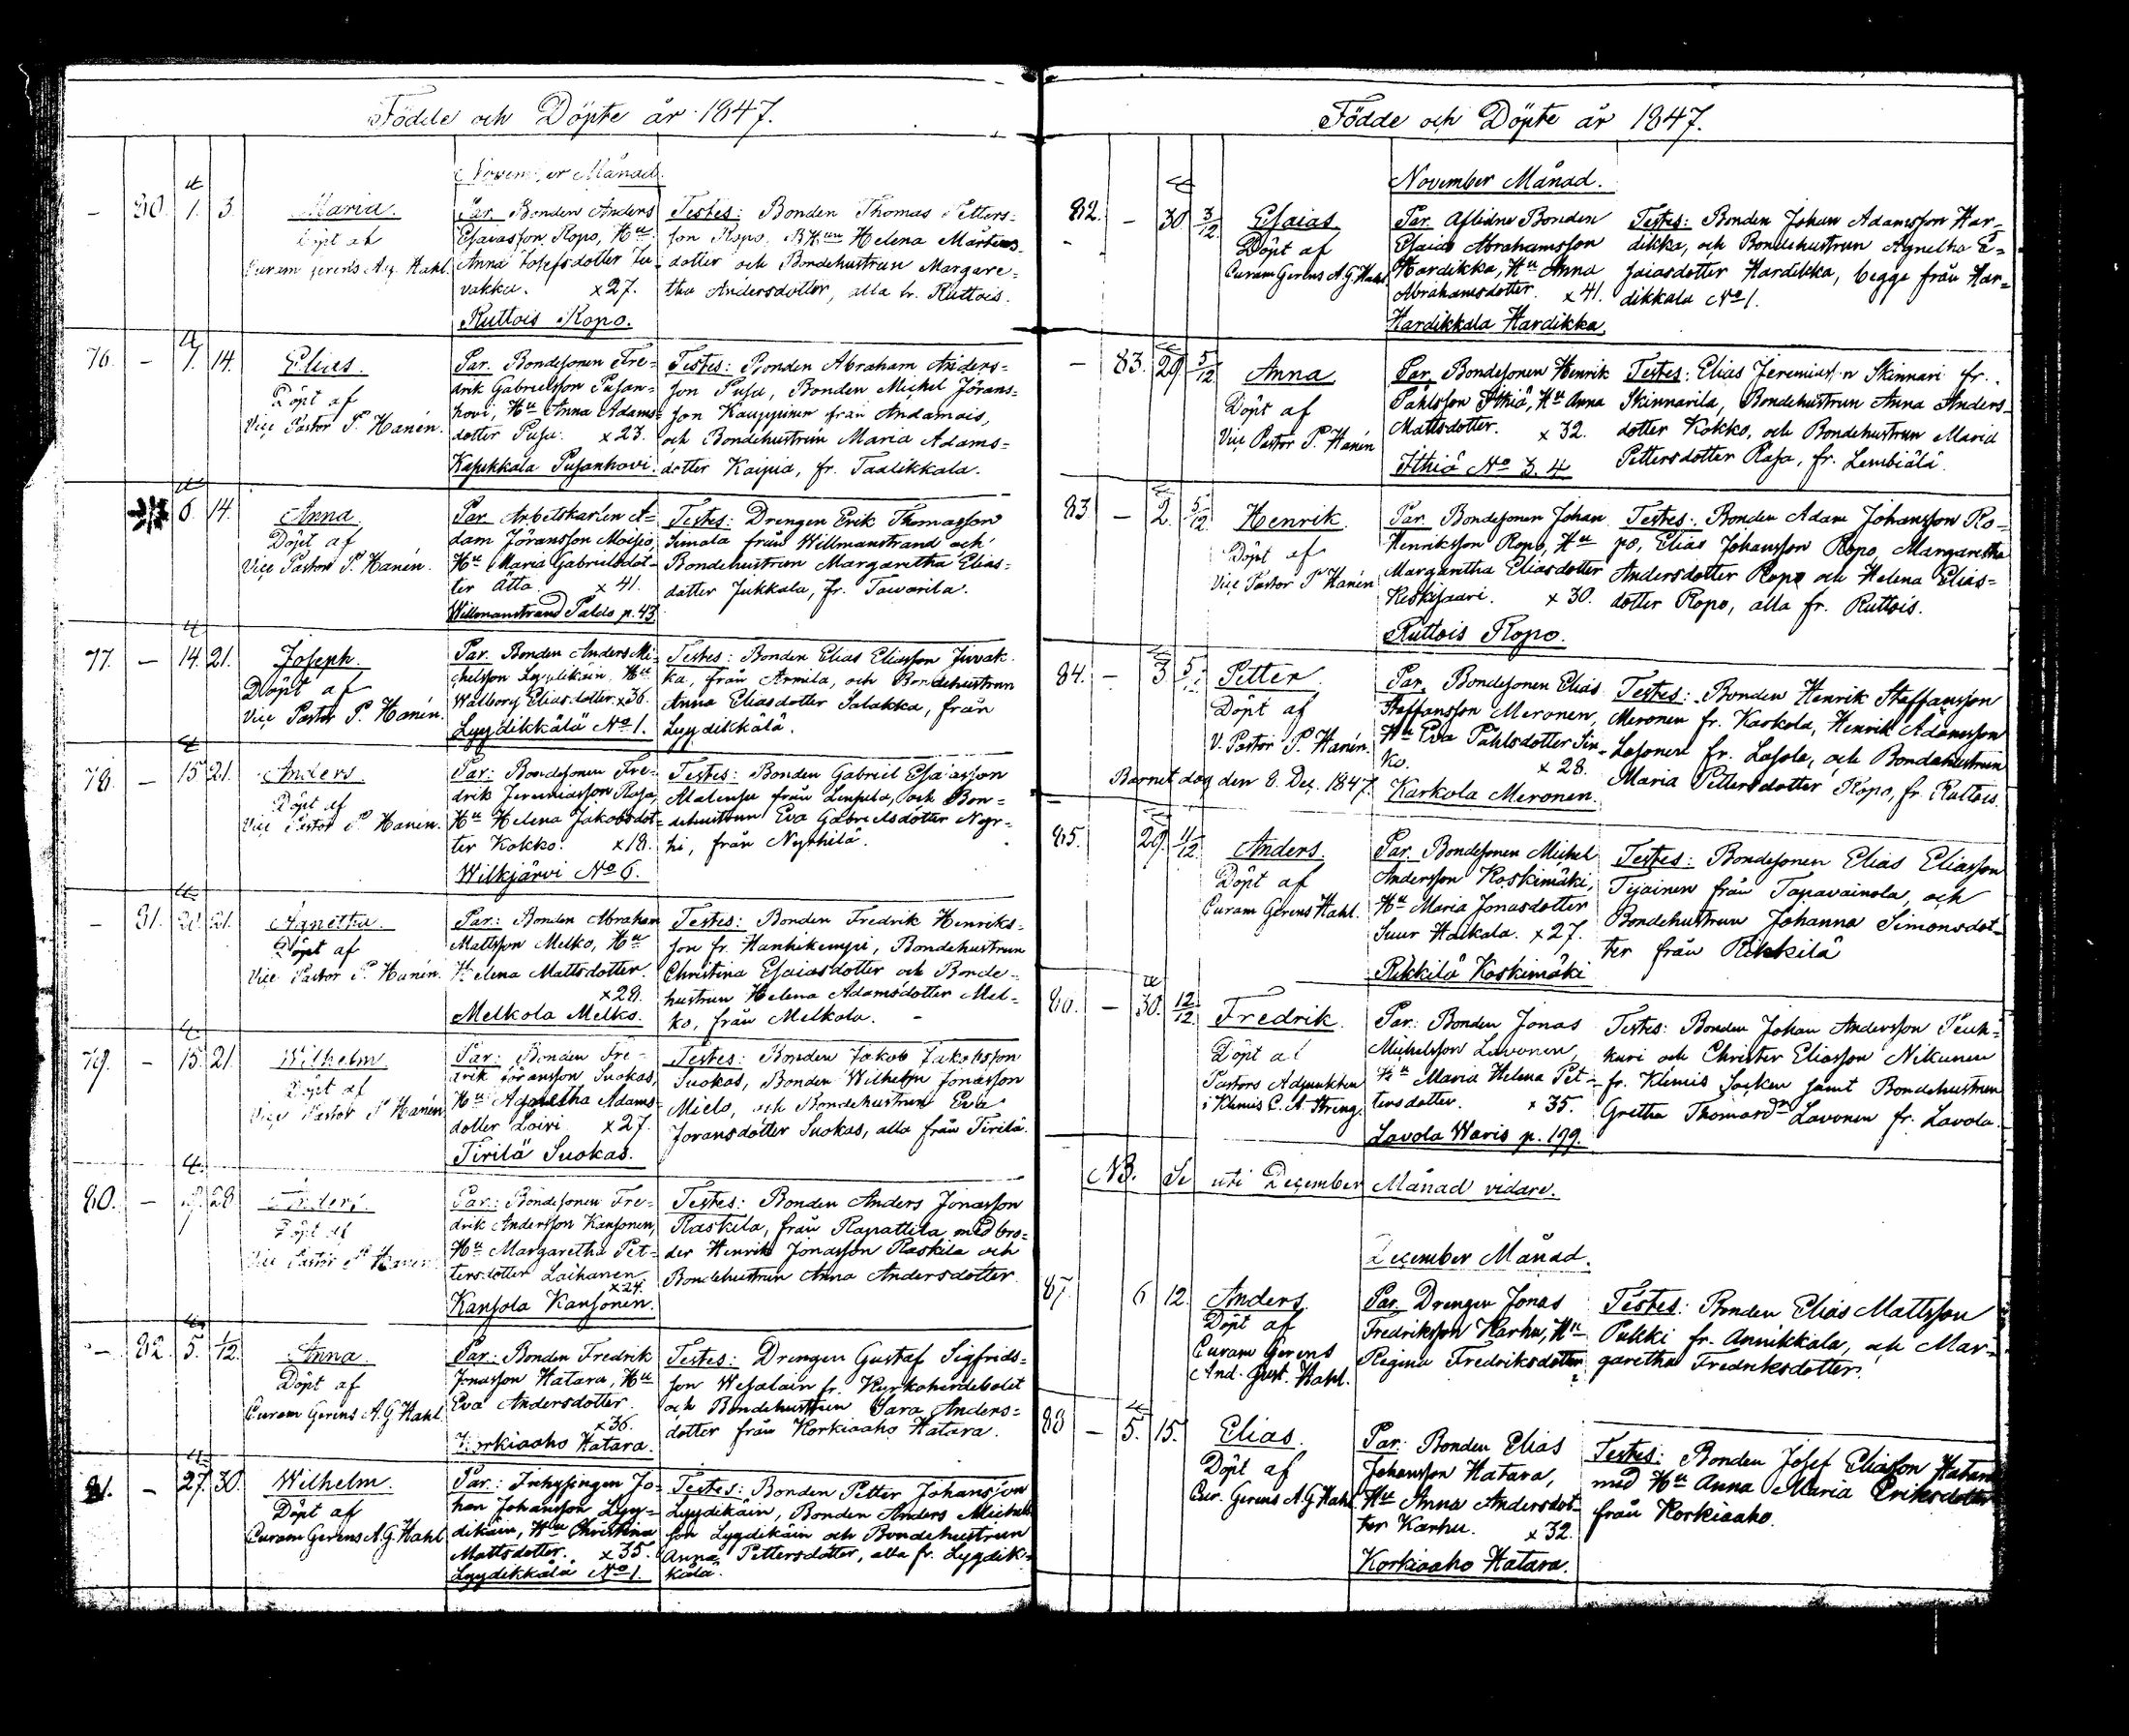 Födde och Döpte år 1847.
November Månad.
– 80. 1. 3. Maria.
Döpt af
Curam gerens Aug. Hahl.
Par. Bonden Anders
Esaiasson Ropo, Hu
Anna Josefsdotter
vakka. x 27.
Ruttois Ropo.
Testes: Bonden Thomas Petters-
son Ropo. BHun Helena Mårtens-
dotter och Bondehustrun Margare-
tha Andersdotter, alla fr. Ruttois.
76. – 7. 14. Elias.
Döpt af
Viçe Pastor P. Hanén.
Par. Bondesonen Fre-
drik Gabrielsson Pusan-
hovi, Hu Anna Adams-
dotter Pusa. x 23.
Kapikkala Pusanhovi.
Testes: Bonden Abraham Anders-
son Pusa, Bonden Michel Jörans-
son Kauppinen från Andamois,
och Bondehustrun Maria Adams-
dotter Kaipia, fr. Taalikkala.
6. 14. Anna
Döpt af
Viçe Pastor P. Hanén.
Par. Arbetskarlen A-
dam Jöransson Moisio,
Hu Maria Gabrielsdot-
ter Ätta. x 41.
Willmanstrand Saldo p. 43.
Testes: Drengen Erik Thomasson
Simola från Willmanstrand och
Bondehustrun Margaretha Elias-
dotter Jukkala, fr. Tawarila.
77. – 14. 21. Joseph.
Döpt af
Viçe Pastor P. Hanén.
Par. Bonden Anders Mi-
chelsson Lyydikäin, Hu
Walborg Eliasdotter. x 36.
Lyydikkälä No 1.
Testes: Bonden Elias Eliasson Juvak-
ka, från Armila, och Bondehustrun
Anna Eliasdotter Salakka, från
Lyydikkälä.
78. – 15. 21. Anders.
Döpt af
Viçe Pastor P. Hanén.
Par: Bondesonen Fre-
drik Jeremiasson Rasa,
Hu Helena Jakobsdot-
ter Kokko. x 18.
Wilkjärvi No 6.
Testes: Bonden Gabriel Esaiasson
från och Bon-
dehustrun Eva Gabrielsdotter Nyr-
hi, från Nyrhilä.
– 81. 21. Agnetha.
Döpt af
Viçe Pastor P. Hanén.
Par: Bonden Abraham
Mattsson Melko, Hu
Helena Mattsdotter.
x 28.
Melkola Melko.
Testes: Bonden Fredrik Henriks-
son fr. Hanhikempi, Bondehustrun
Christina Esaiasdotter och Bonde-
hustrun Helena Adamsdotter Mel-
ko, från Melkola.
79. – 15. 21. Wilhelm.
Döpt af
Viçe Pastor P. Hanén.
Par: Bonden Fre-
drik Jöransson Suokas,
Hu Agnetha Adams-
dotter Loiri. x 27.
Tirilä Suokas.
Testes: Bonden Jakob Jakobsson
Suokas, Bonden Wilhelm Jonasson
Mielo, och Bondehustrun Eva
Joransdotter Suokas, alla från Tirilä.
80. – 28. Anders.
Döpt af
Viçe Pastor P. Hanén.
Par: Bondesonen Fre-
drik Andersson Kansonen,
Hu Margaretha Pet-
tersdotter Laihanen.
x 24.
Kansola Kansonen.
Testes: Bonden Anders Jonasson
Raskila, från Rapattila, med bro-
der Henrik Jonasson Raskila och
Bondehustrun Anna Andersdotter.
– 82. 5. 1/12. Anna.
Döpt af
Curam Gerens A. G. Hahl
Par: Bonden Fredrik
Jonasson Hatara, Hu
Eva Andersdotter.
x 36.
Korkiaaho Hatara.
Testes: Drengen Gustaf Sigfrids-
son Wesalain fr. Kyrkoherdebolet
och Bondehustrun Sara Anders-
dotter från Korkiaaho Hatara.
81. – 27. 30. Wilhelm.
Döpt af
Curam Gerens A. G. Hahl
Par: Inhysingen Jo-
han Johansson Lyy-
dikäin, Hu Christina
Mattsdotter. x 35.
Lyydikkälä No 1.
Testes: Bonden Petter Johansson
Lyydikäin, Bonden Anders Michels-
son Lyydikäin och Bondehustrun
Anna Pettersdotter, alla fr. Lyydik-
kälä.
Födde och Döpte år 1847.
November Månad.
82. – 30. 3/12. Esaias.
Döpt af
Curam Gerens A. G. Hahl
Par. Aflidne Bonden
Esaias Abrahamsson
Hardikka, Hu Anna
Abrahamsdotter. x 41.
Hardikkala Hardikka.
Testes: Bonden Johan Adamsson Har-
dikka, och Bondehustrun Agnetha E-
saiasdotter Hardikka, begge från Har-
dikkala No 1.
– 83. 29. 5/12. Anna
Döpt af
Viçe Pastor P. Hanén
Par. Bondesonen Henrik
Påhlsson Ithiä, Hu Anna
Mattsdotter. x 32.
Ithiä No 3. 4
Testes: Elias Jeremiasson Skinnari fr.
Skinnarila, Bondehustrun Anna Anders-
dotter Kokko, och Bondehustrun Maria
Pettersdotter Rasa, fr. Lembiälä.
83 – 2. 5/12. Henrik.
Döpt af
Viçe Pastor P Hanén
Par. Bondesonen Johan
Henriksson Ropo, Hu
Margaretha Eliasdotter
Keskisaari. x 30.
Ruttois Ropo.
Testes: Bonden Adam Johansson Ro-
po, Elias Johansson Ropo, Margaretha
Andersdotter Ropo och Helena Elias-
dotter Ropo, alla fr. Ruttois.
84. – 3 5/ Petter.
Döpt af
V. Pastor P. Hanén.
Barnet dog den 8 Dec. 1847.
Par. Bondesonen Elias
Staffansson Meronen,
Hu Eva Påhlsdotter Sin-
ko. x 28.
Karkola Meronen.
Testes: Bonden Henrik Staffansson
Meronen fr. Karkola, Henrik Adamsson
Lasonen fr. Lasola, och Bondehustrun
Maria Pettersdotter Ropo, fr. Ruttois.
85. 29. 11/12. Anders.
Döpt af
Curam Gerens Hahl.
Par. Bondesonen Michel
Andersson Koskimäki,
Hu Maria Jonasdotter
Suur Haikala. x 27.
Rikkilä Koskimäki
Testes: Bondesonen Elias Eliasson
Tijainen från Tapavainola, och
Bondehustrun Johanna Simonsdot-
ter från Rikkilä
86. – 30. 12/12. Fredrik.
Döpt af
Pastors Adjunkten
i Klemis C. A. Streng.
Par: Bonden Jonas
Michelsson Lavonen,
Hu Maria Helena Pet-
tersdotter. x 35.
Lavola Waris p. 199.
Testes: Bonden Johan Andersson Peuh-
kuri och Christer Eliasson Nikunen
fr. Klemis Socken samt Bondehustrun
Gretha Thomasdr Lavonen fr. Lavola.
NB. Se uti December Månad vidare.
December Månad.
87. 6 12. Anders
Döpt af
Curam Gerens
And. Gust. Hahl.
Par. Drengen Jonas
Fredriksson Karhu, Hu
Regina Fredriksdotter
Testes: Bonden Elias Mattsson
Pukki fr. Annikkala, och Mar-
garetha Fredriksdotter.
88 – 5. 15. Elias.
Döpt af
Cur. Gerens A. G Hahl
Par: Bonden Elias
Johansson Hatara,
Hu Anna Andersdot-
ter Karhu. x 32.
Korkiaaho Hatara.
Testes: Bonden Josef Eliasson Hatara
med Hu Anna Maria Eriksdotter
från Korkiaaho.